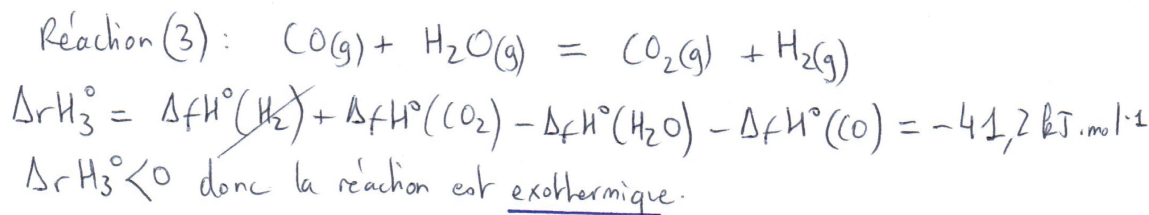 Réaction (3) : CO(g) + H₂O(g) = CO₂(g) + H₂(g)
ΔrH₃° = ΔfH°(H₂) + ΔfH°(CO₂) – ΔfH°(H₂O) – ΔfH°(CO) = –41,2 kJ.mol-1
ΔrH₃°<0 donc la réaction est exothermique.